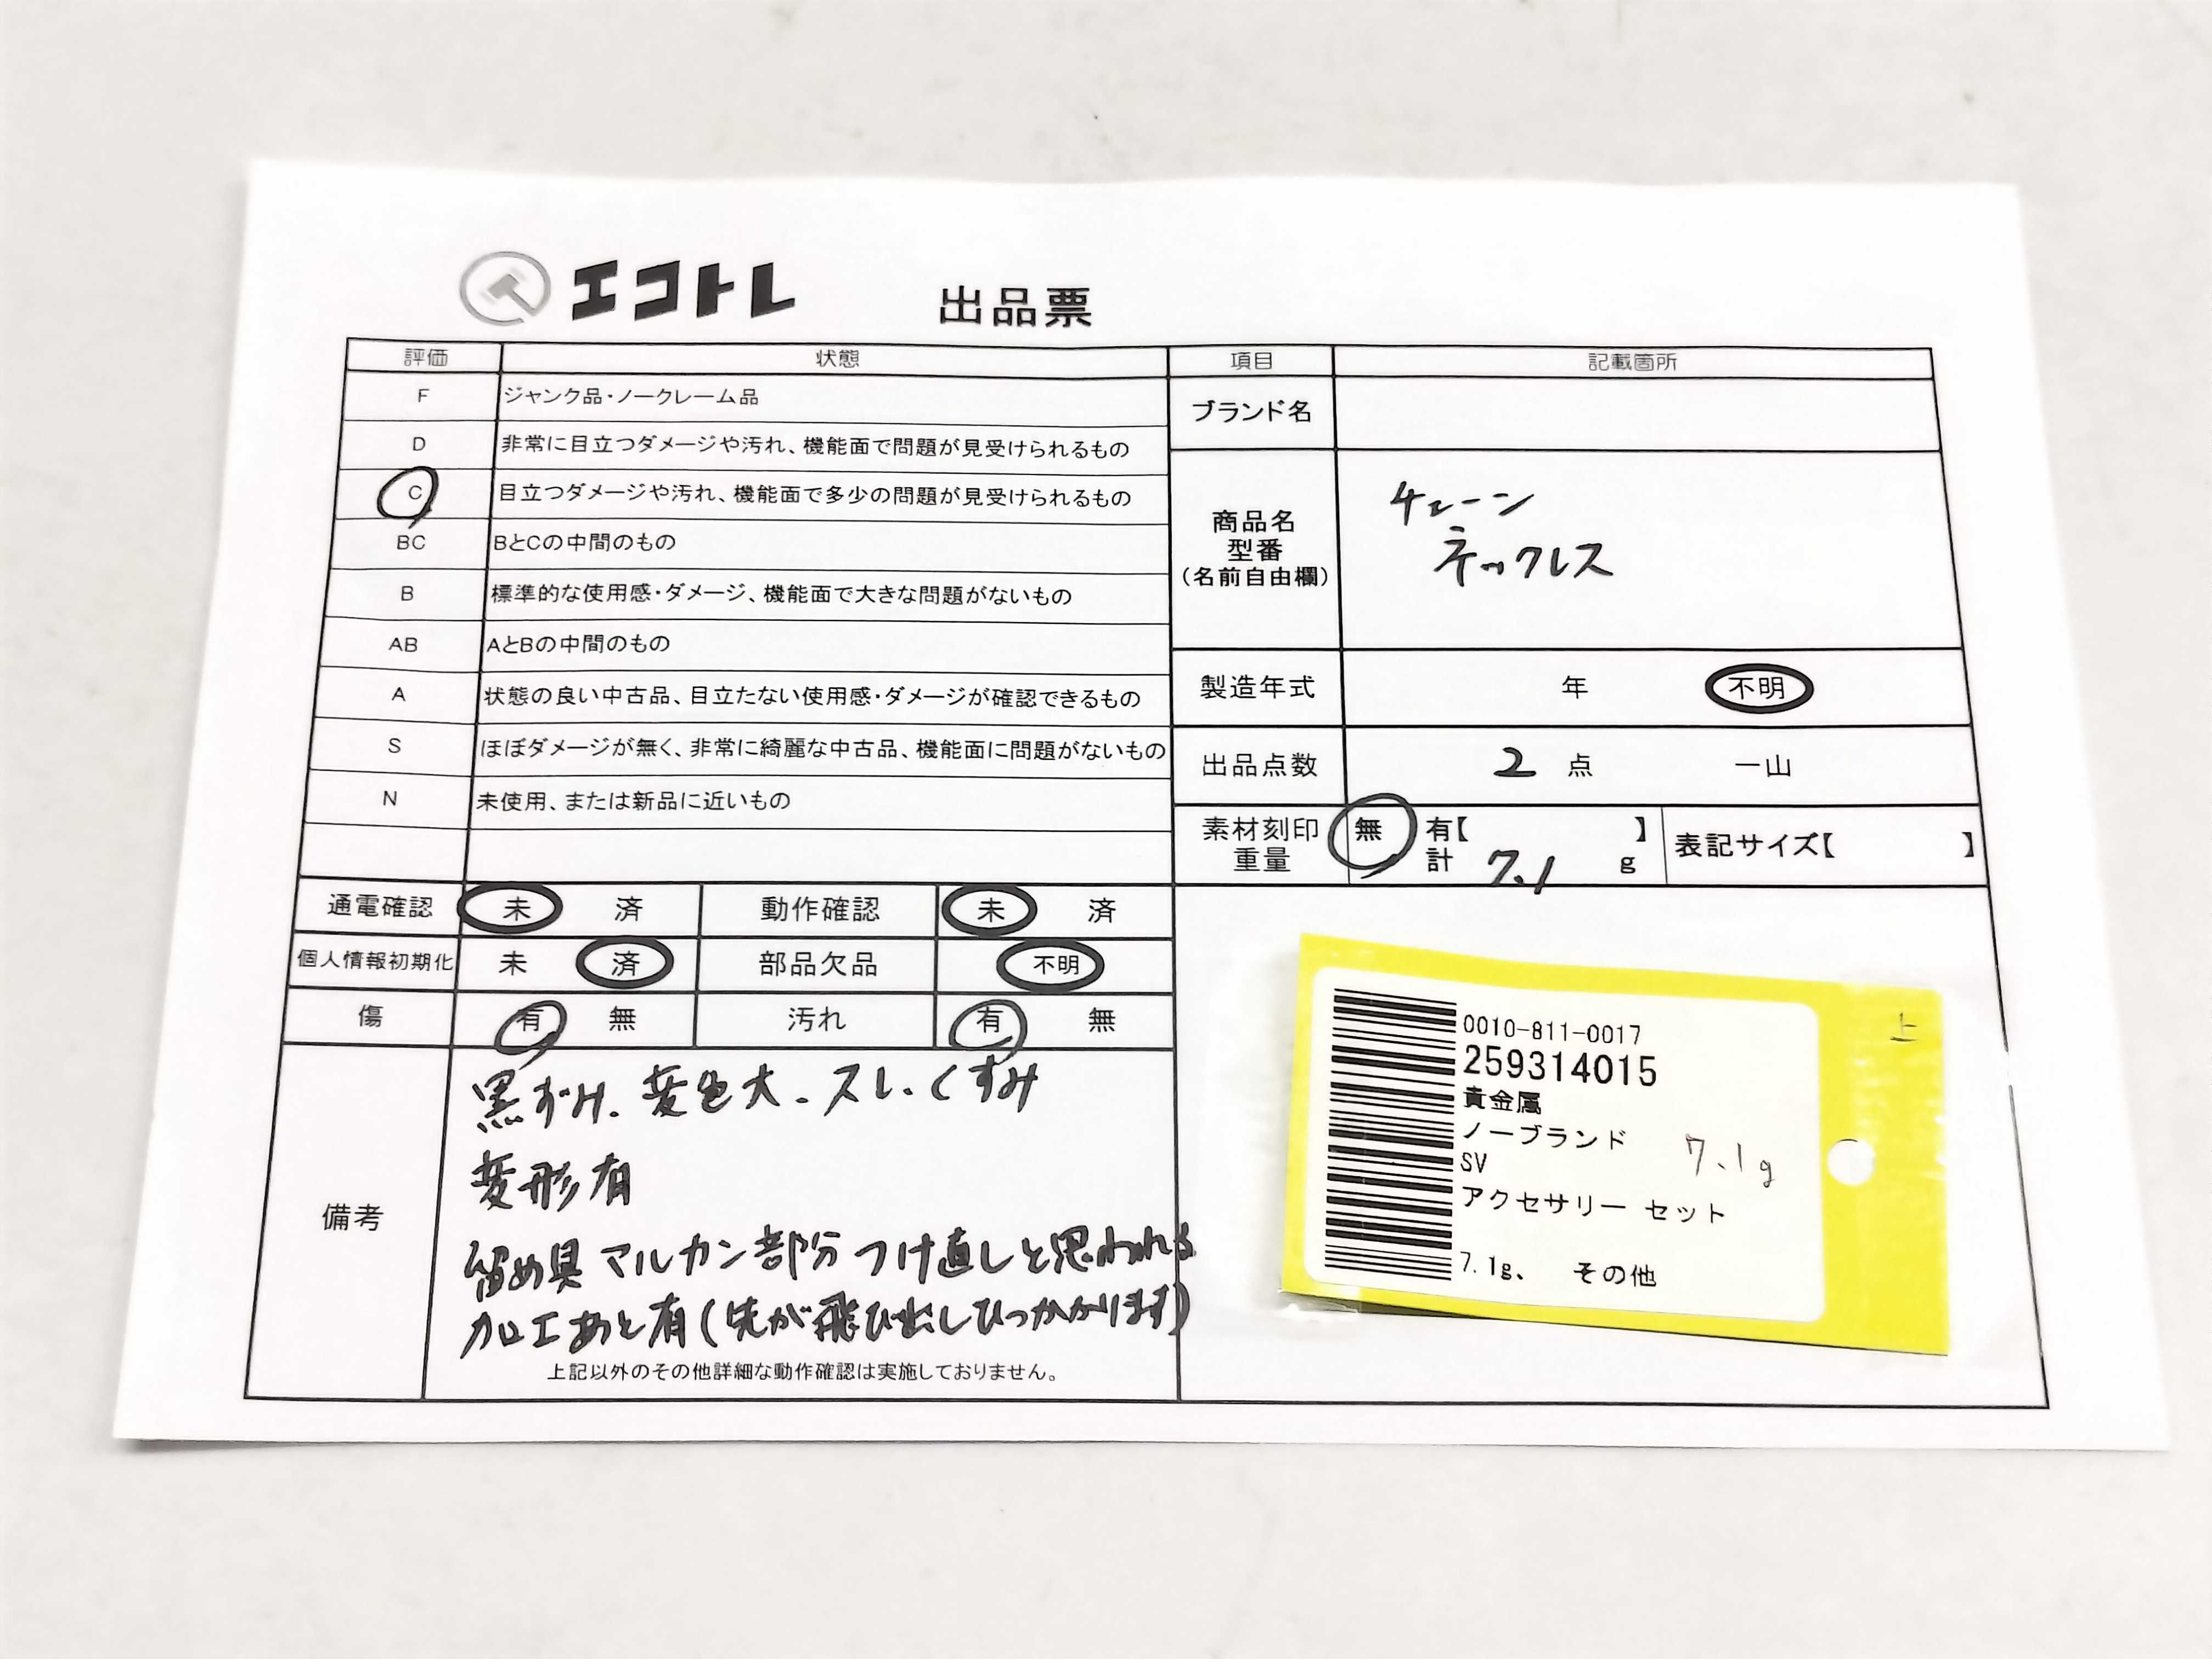 エコトレ 出品票
評価 状態
F ジャンク品・ノークレーム品
D 非常に目立つダメージや汚れ、機能面で問題が見受けられるもの
C 目立つダメージや汚れ、機能面で多少の問題が見受けられるもの
BC BとCの中間のもの
B 標準的な使用感・ダメージ、機能面で大きな問題がないもの
AB AとBの中間のもの
A 状態の良い中古品、目立たない使用感・ダメージが確認できるもの
S ほぼダメージが無く、非常に綺麗な中古品、機能面に問題がないもの
N 未使用、または新品に近いもの
通電確認 未 済 動作確認 未 済
個人情報初期化 未 済 部品欠品 不明
傷 有 無 汚れ 有 無
備考
黒ずみ、変色大、スレ、くすみ
変形有
留め具マルカン部分つけ直しと思われる
加工あと有(先が飛び出しひっかかります)
上記以外のその他詳細な動作確認は実施しておりません。
項目 記載箇所
ブランド名
商品名
型番
(名前自由欄)
チェーン
ネックレス
製造年式 年 不明
出品点数 2 点 一山
素材刻印 無 有【 】
重量 計 7.1 g
表記サイズ【 】
上
0010-811-0017
259314015
貴金属
ノーブランド 7.1g
SV
アクセサリー セット
7.1g、 その他